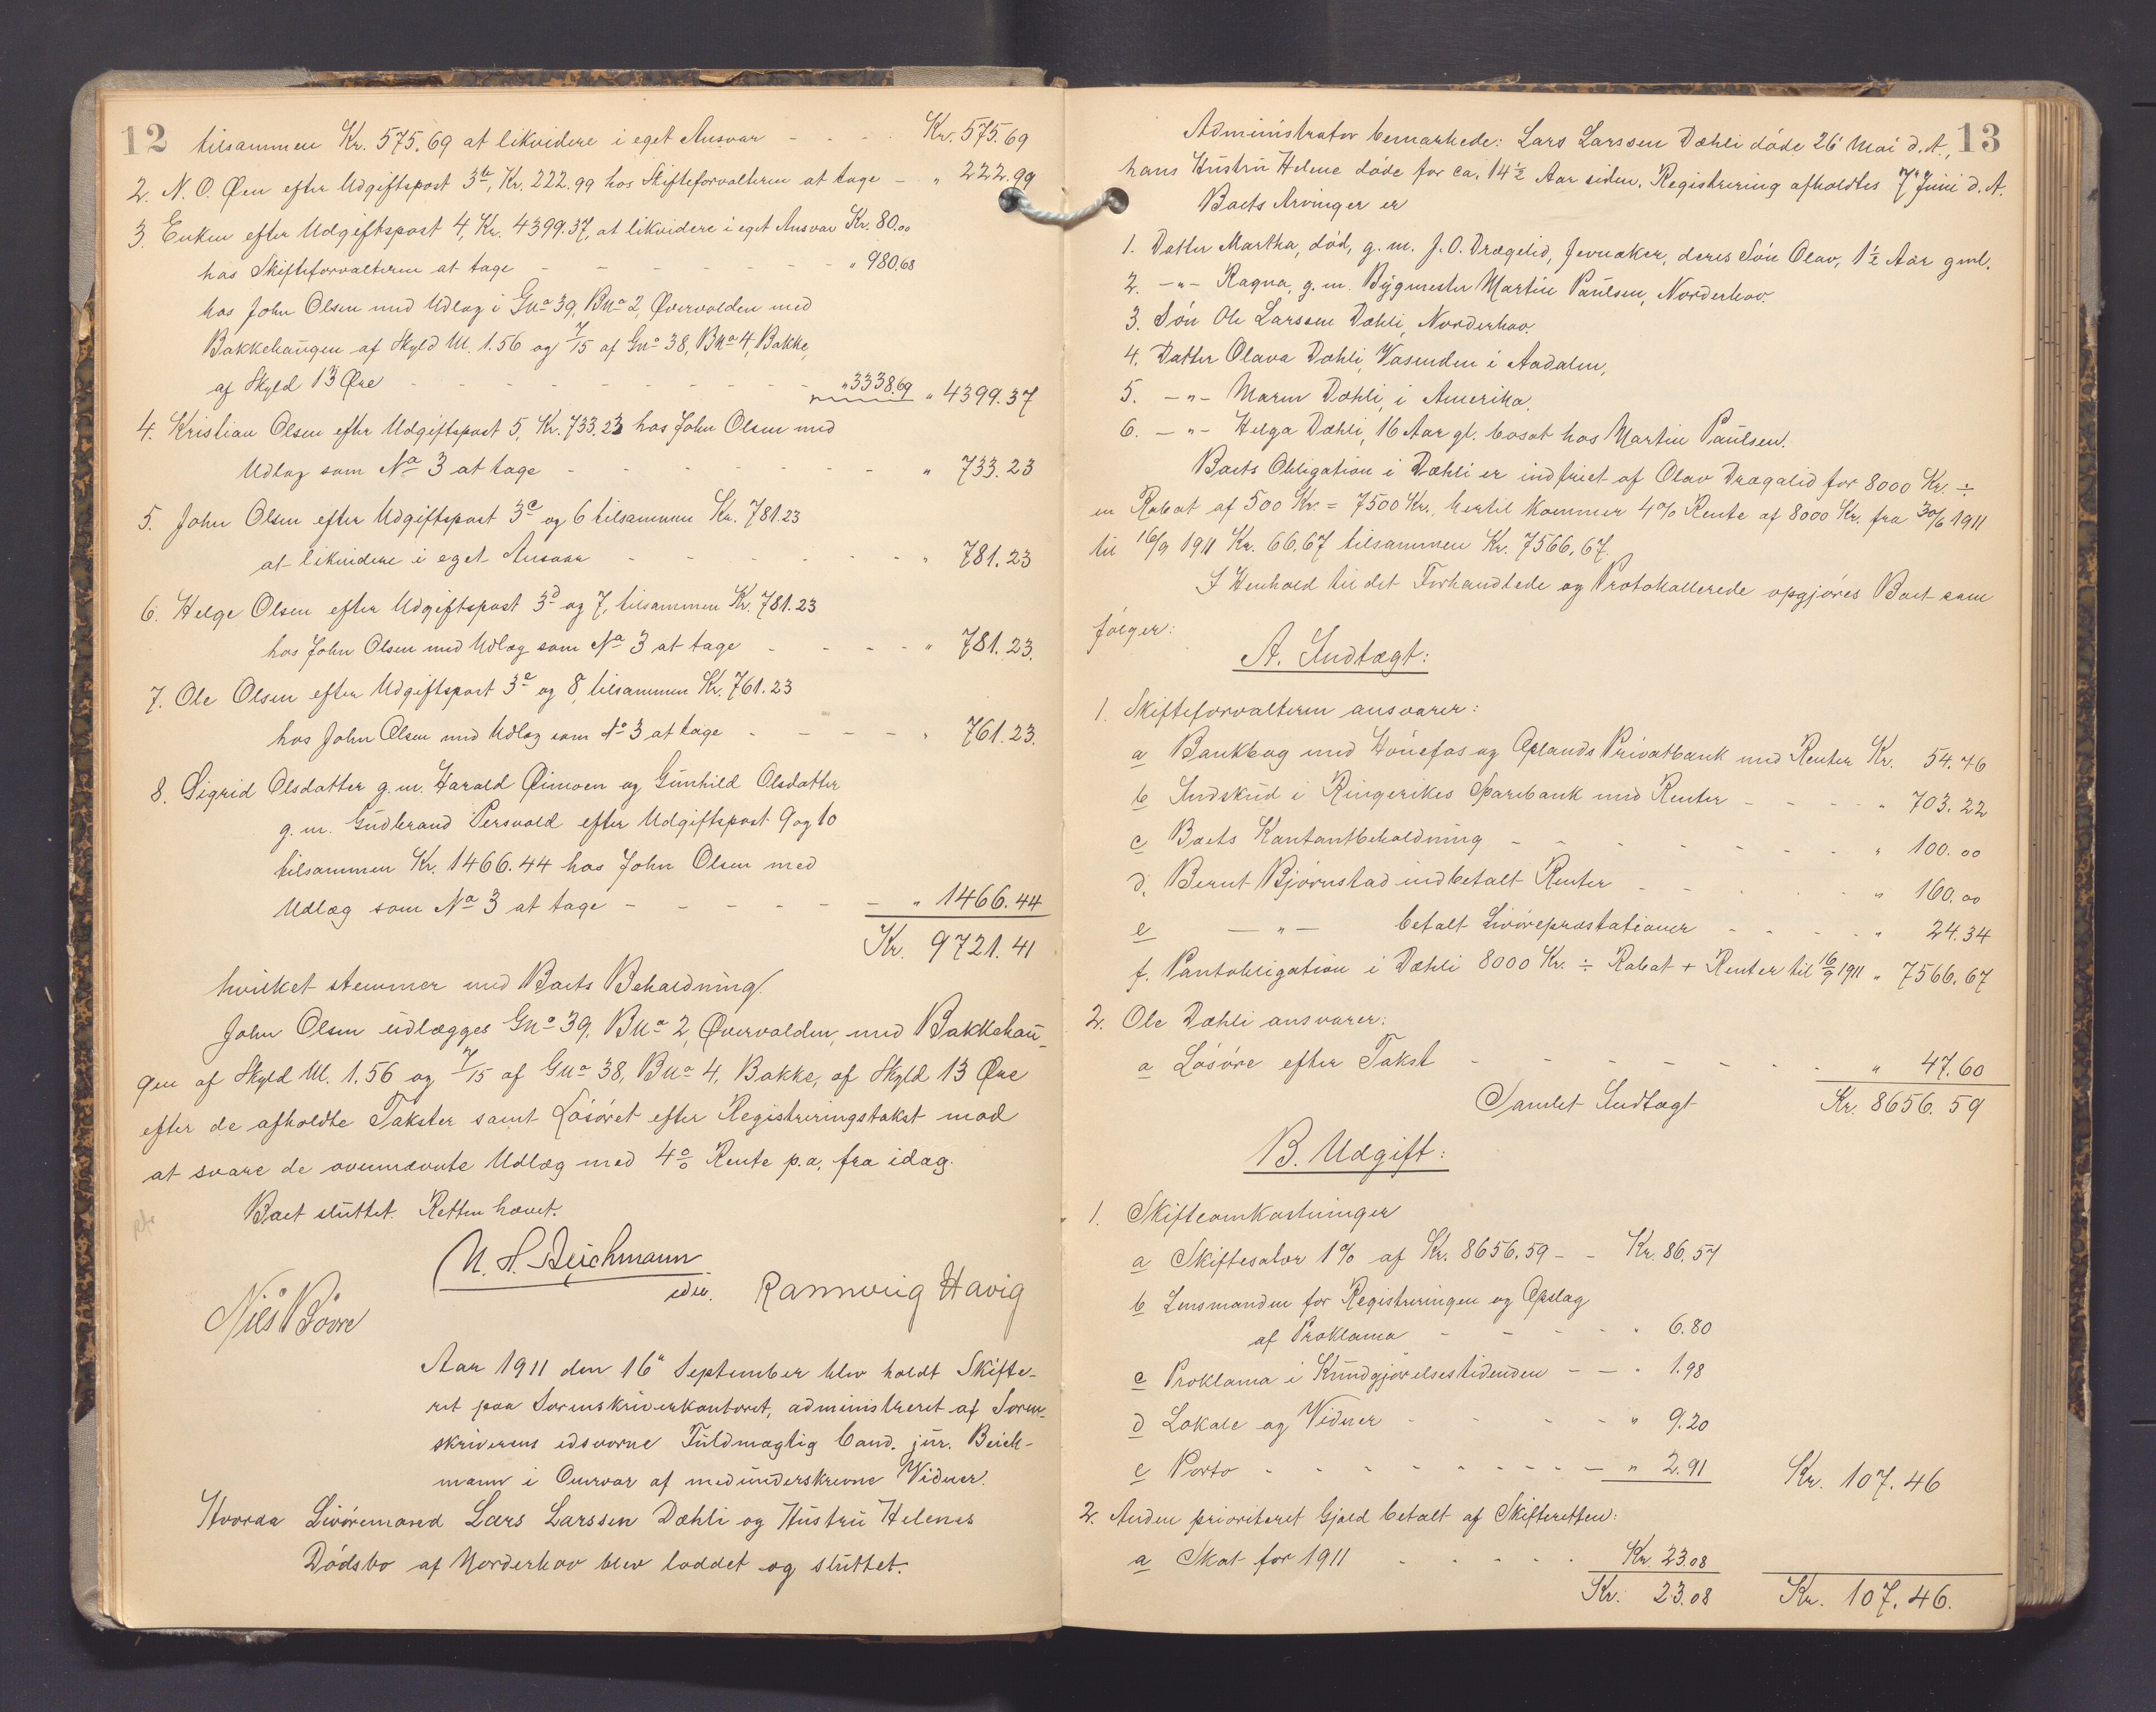 12
tilsammen Kr. 575.69 at likvidere i eget Ansvar - - - - Kr. 575.69
2. N. O. Øen efter Udgiftspost 3b, Kr. 222.99 hos Skifteforvalteren at tage - " 222.99
3. Enken efter Udgiftspost 4, Kr. 4399.37, at likvidere i eget Ansvar Kr. 80.00
hos Skifteforvalteren at tage - - - - - - - " 980.68
hos John Olsen med Udlæg i Gno 39, Bno 2, Øvervolden med
Bakkehaugen af Skyld M. 1.56 og 7/15 af Gno 38, Bno 4, Bakke,
af Skyld 13 Øre - - - - - - - - - - " 3338.69 " 4399.37
4. Kristian Olsen efter Udgiftspost 5, Kr. 733.23 hos John Olsen med
Udlæg som No 3 at tage - - - - - - - " 733.23
5. John Olsen efter Udgiftspost 3c og 6 tilsammen Kr. 781.23
at likvidere i eget Ansvar - - - - - - " 781.23
6. Helge Olsen efter Udgiftspost 3d og 7, tilsammen Kr. 781.23
hos John Olsen med Udlæg som No 3 at tage - - - - " 781.23.
7. Ole Olsen efter Udgiftspost 3e og 8, tilsammen Kr. 761.23
hos John Olsen med Udlæg som No 3 at tage - - - - " 761.23.
8. Sigrid Olsdatter g. m. Harald Øimoen og Gunhild Olsdatter
g. m. Gudbrand Persvold efter Udgiftspost 9 og 10
tilsammen Kr. 1466.44 hos John Olsen med
Udlæg som No 3 at tage - - - - - - " 1466.44
Kr. 9721.41
hvilket stemmer med Boets Beholdning.
John Olsen udlægges Gno 39, Bno 2, Øvervolden, med Bakkehau-
gen af Skyld M. 1.56 og 7/15 af Gno 38, Bno 4, Bakke, af Skyld 13 Øre
efter de afholdte Takster samt Løsøret efter Registreringstakst mod
at svare de ovennævnte Udlæg med 4% Rente p.a. fra idag.
Boet sluttet. Retten hævet.
N. H. Beichmann
edsv.
Rannveig Havig
Nils Bövre
Aar 1911 den 16de September blev holdt Skifte-
ret paa Sorenskriverkontoret, administreret af Soren-
skriverens edsvorne Fuldmægtig Cand. jur. Beich-
mann i Overvær af medunderskrevne Vidner.
Hvorda Livøremand Lars Larssen Dæhli og Hustru Helenes
Dødsbo af Norderhov blev loddet og sluttet.
13
Administrator bemærkede: Lars Larssen Dæhli døde 26 Mai d. A.,
hans Hustru Helene døde for ca. 14½ Aar siden. Registrering afholdtes 7de Juni d. A.
Boets Arvinger er
1. Datter Martha, død, g. m. J. O. Drægelid, Jevnaker, deres Søn Olav, 1½ Aar gml.
2. -"- Ragna, g. m. Bygmester Martin Paulsen, Norderhov.
3. Søn Ole Larssen Dæhli, Norderhov.
4. Datter Olava Dæhli, Vasenden i Aadalen,
5. -"- Maren Dæhli, i Amerika,
6. -"- Helga Dæhli, 16 Aar gl. bosat hos Martin Paulsen.
Boets Obligation i Dæhli er indfriet af Olav Drægalid for 8000 Kr. ÷
en Rabat af 500 Kr. = 7500 Kr., hertil kommer 4% Rente af 8000 Kr. fra 30/6 1911
til 16/9 1911 Kr. 66.67 tilsammen Kr. 7566.67.
I Henhold til det Forhandlede og Protokollerede opgjøres Boet som
følger:
A. Indtægt:
1. Skifteforvalteren ansvarer:
a Bankbog med Hønefos og Oplands Privatbank med Renter Kr. 54.76
b Indskud i Ringerikes Sparebank med Renter - - - - " 703.22
c Boets Kontantbeholdning - - - - - - - " 100.00
d. Bernt Bjørnstad indbetalt Renter - - - - - " 160.00
e -"- betalt Livørepræstationer - - - - " 24.34
f. Pantobligation i Dæhli 8000 Kr. ÷ Rabat + Renter til 16/9 1911 " 7566.67
2. Ole Dæhli ansvarer:
a Løsøre efter Takst - - - - - - - " 47.60
Samlet Indtægt Kr. 8656.59
B. Udgift:
1. Skifteomkostninger
a Skiftesalær 1% af Kr. 8656.59 - - Kr. 86.57
b Lensmanden for Registreringen og Opslag
af Proklama - - - - - " 6.80
c Proklama i Kundgjørelsestidenden - - " 1.98
d Lokale og Vidner - - - - " 9.20
e Porto - - - - - - - - - " 2.91 Kr. 107.46
2. Anden prioriteret Gjæld betalt af Skifteretten:
a Skat for 1911 - - - - - Kr. 23.08
Kr. 23.08 Kr. 107.46.